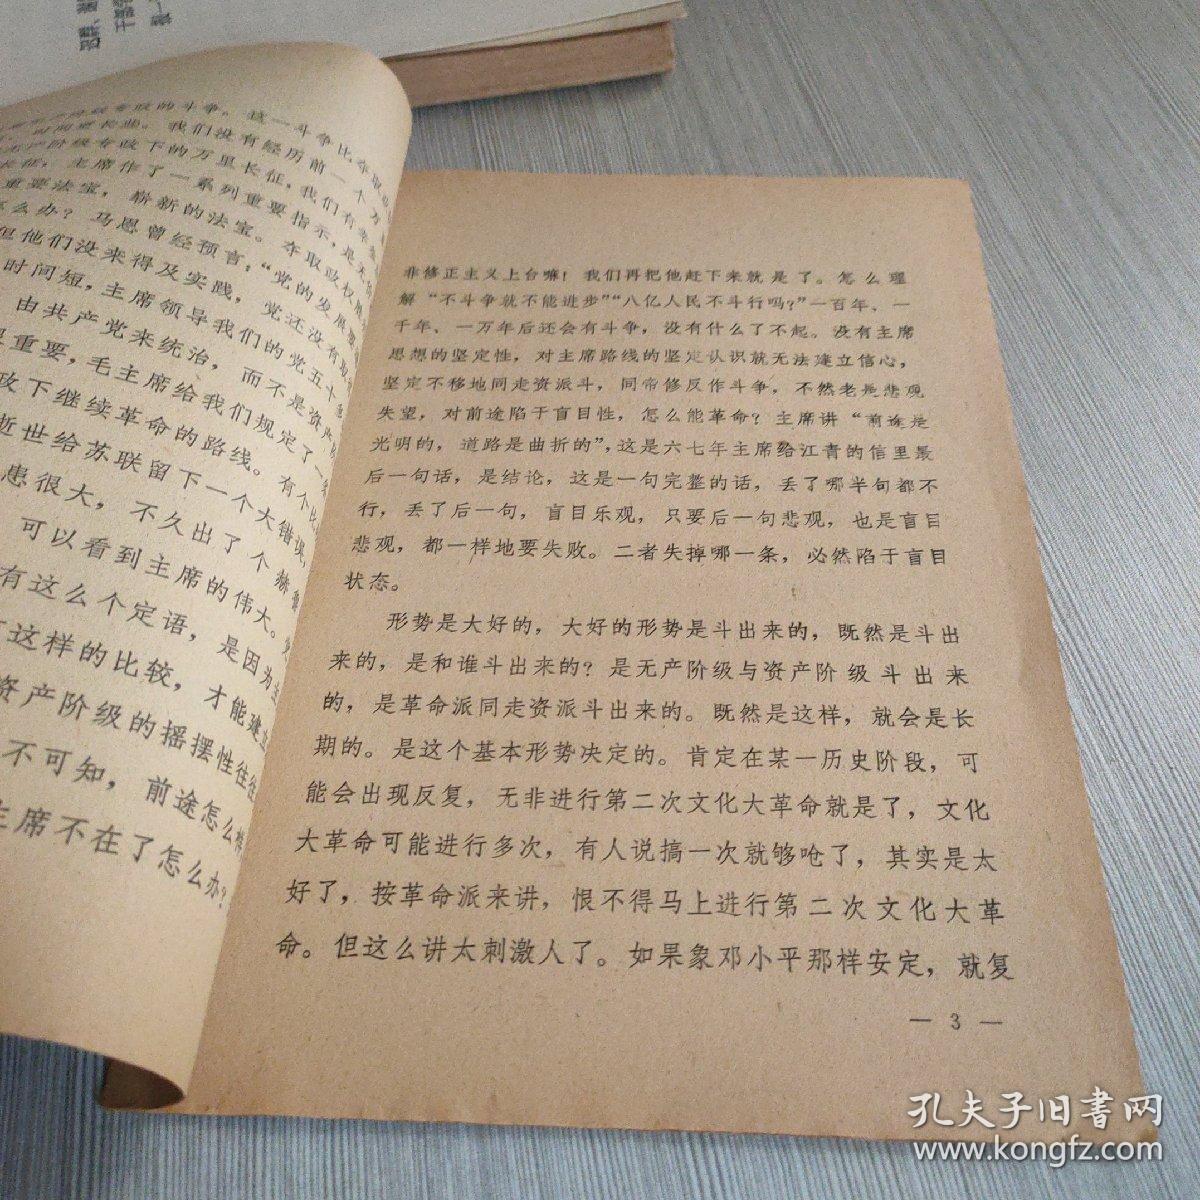 阶级专政的斗争。这一斗争比夺取
时间更长些。我们没有经历前一个万
无产阶级专政下的万里长征，我们有幸
长征；主席作了一系列重要指示，是无
重要法宝，崭新的法宝。夺取政权
怎么办？马恩曾经预言：“党的发展要
但他们没来得及实践，党还没有取
时间短，主席领导我们的党五十
由共产党来统治，而不是资产
重要，毛主席给我们规定了一
政下继续革命的路线。有个比
逝世给苏联留下一个大错误，
患很大，不久出了个赫
可以看到主席的伟大。
有这么个定语，是因为
这样的比较，才能建立
资产阶级的摇摆性往往
不可知，前途怎么样
主席不在了怎么办？
非修正主义上台嘛！我们再把他赶下来就是了。怎么理
解“不斗争就不能进步”“八亿人民不斗行吗？”一百年、一
千年、一万年后还会有斗争，没有什么了不起。没有主席
思想的坚定性，对主席路线的坚定认识就无法建立信心，
坚定不移地同走资派斗，同帝修反作斗争，不然老是悲观
失望，对前途陷于盲目性，怎么能革命？主席讲“前途是
光明的，道路是曲折的”，这是六七年主席给江青的信里最
后一句话，是结论，这是一句完整的话，丢了哪半句都不
行，丢了后一句，盲目乐观，只要后一句悲观，也是盲目
悲观，都一样地要失败。二者失掉哪一条，必然陷于盲目
状态。
形势是大好的，大好的形势是斗出来的，既然是斗出
来的，是和谁斗出来的？是无产阶级与资产阶级斗出来
的，是革命派同走资派斗出来的。既然是这样，就会是长
期的。是这个基本形势决定的。肯定在某一历史阶段，可
能会出现反复，无非进行第二次文化大革命就是了，文化
大革命可能进行多次，有人说搞一次就够呛了，其实是太
好了，按革命派来讲，恨不得马上进行第二次文化大革
命。但这么讲太刺激人了。如果象邓小平那样安定，就复
— 3 —
孔夫子旧书网
www.kongfz.com